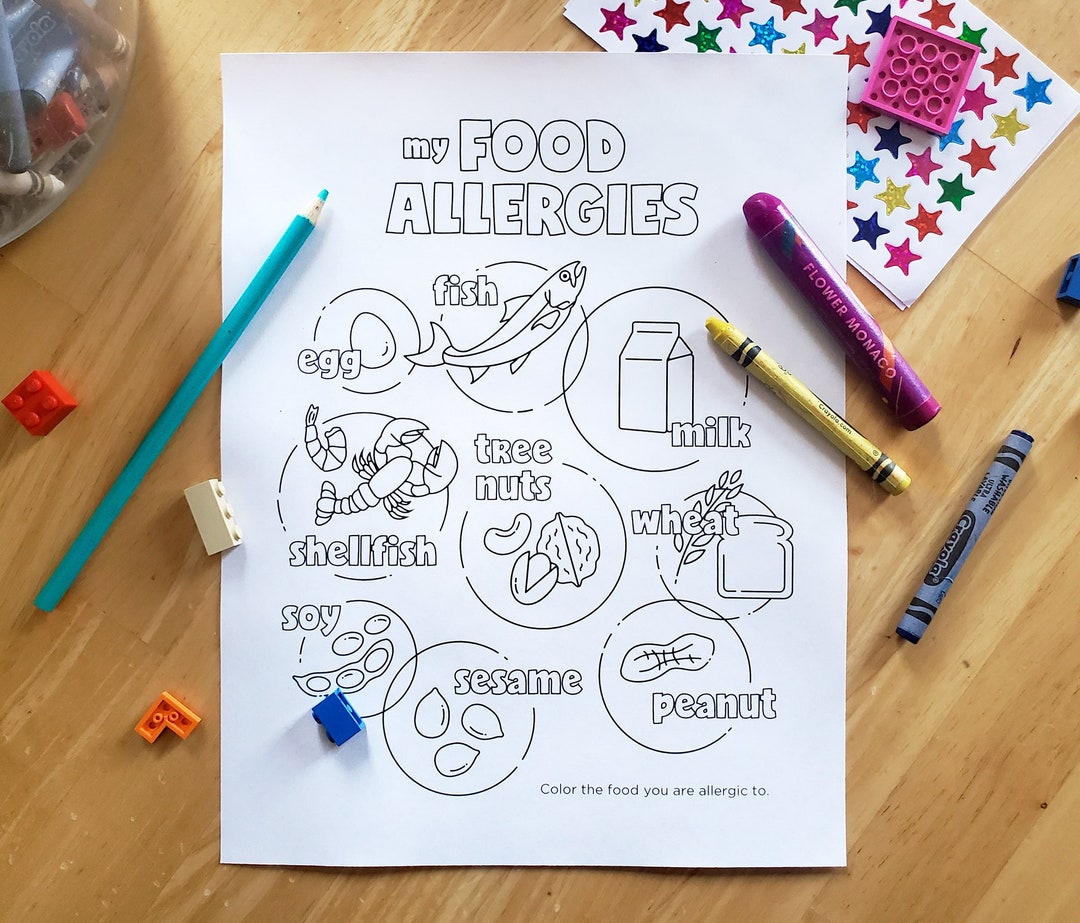 my FOOD
ALLERGIES
fish
egg
milk
tree
nuts
wheat
shellfish
soy
sesame
peanut
Color the food you are allergic to.
FLOWER MONACO
Crayola.com
ULTRA
WASHABLE
Crayola
Crayola